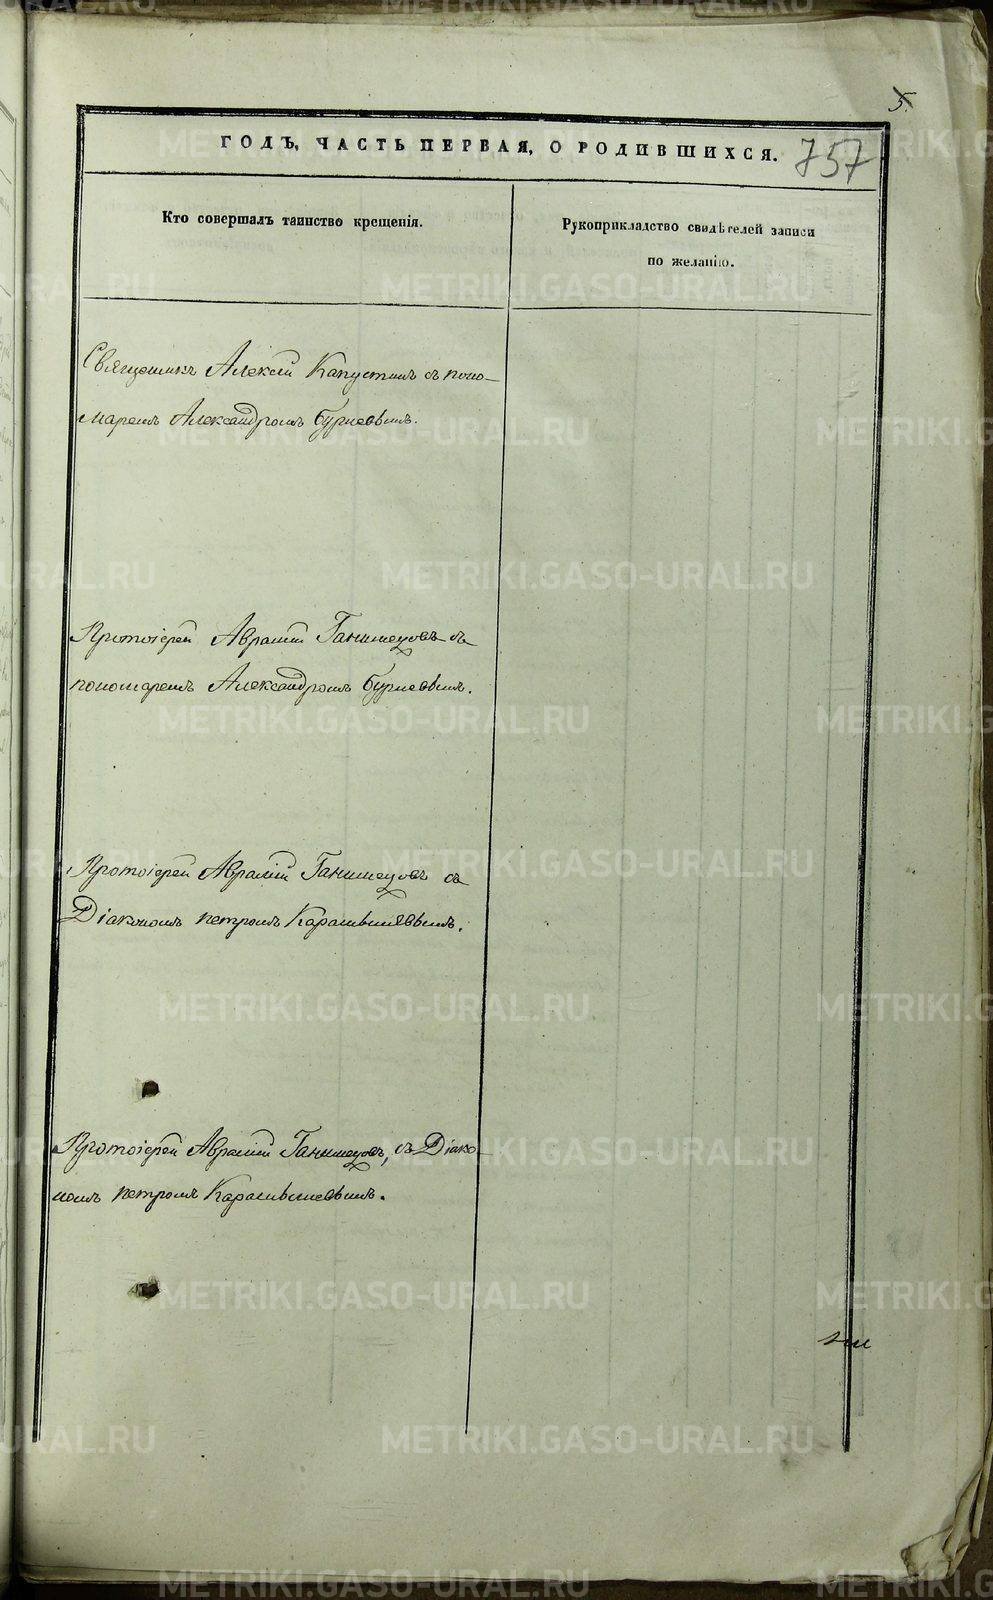 5.
ГОДЪ, ЧАСТЬ ПЕРВАЯ, О РОДИВШИХСЯ. 757
Кто совершалъ таинство крещенія.
Рукоприкладство свидѣтелей записи
по желанію.
Священникъ Алексѣй Капустинъ съ поно-
маремъ Александромъ Бурневымъ.
Протоіерей Аврамій Ганимедовъ съ
пономаремъ Александромъ Бурневымъ.
Протоіерей Аврамій Ганимедовъ съ
Діакономъ Петромъ
Протоіерей Аврамій Ганимедовъ, съ Діако-
номъ Петромъ
METRIKI.GASO-URAL.RU